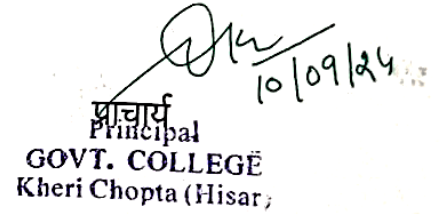 10/09/24
प्राचार्य
Principal
GOVT. COLLEGE
Kheri Chopta (Hisar)